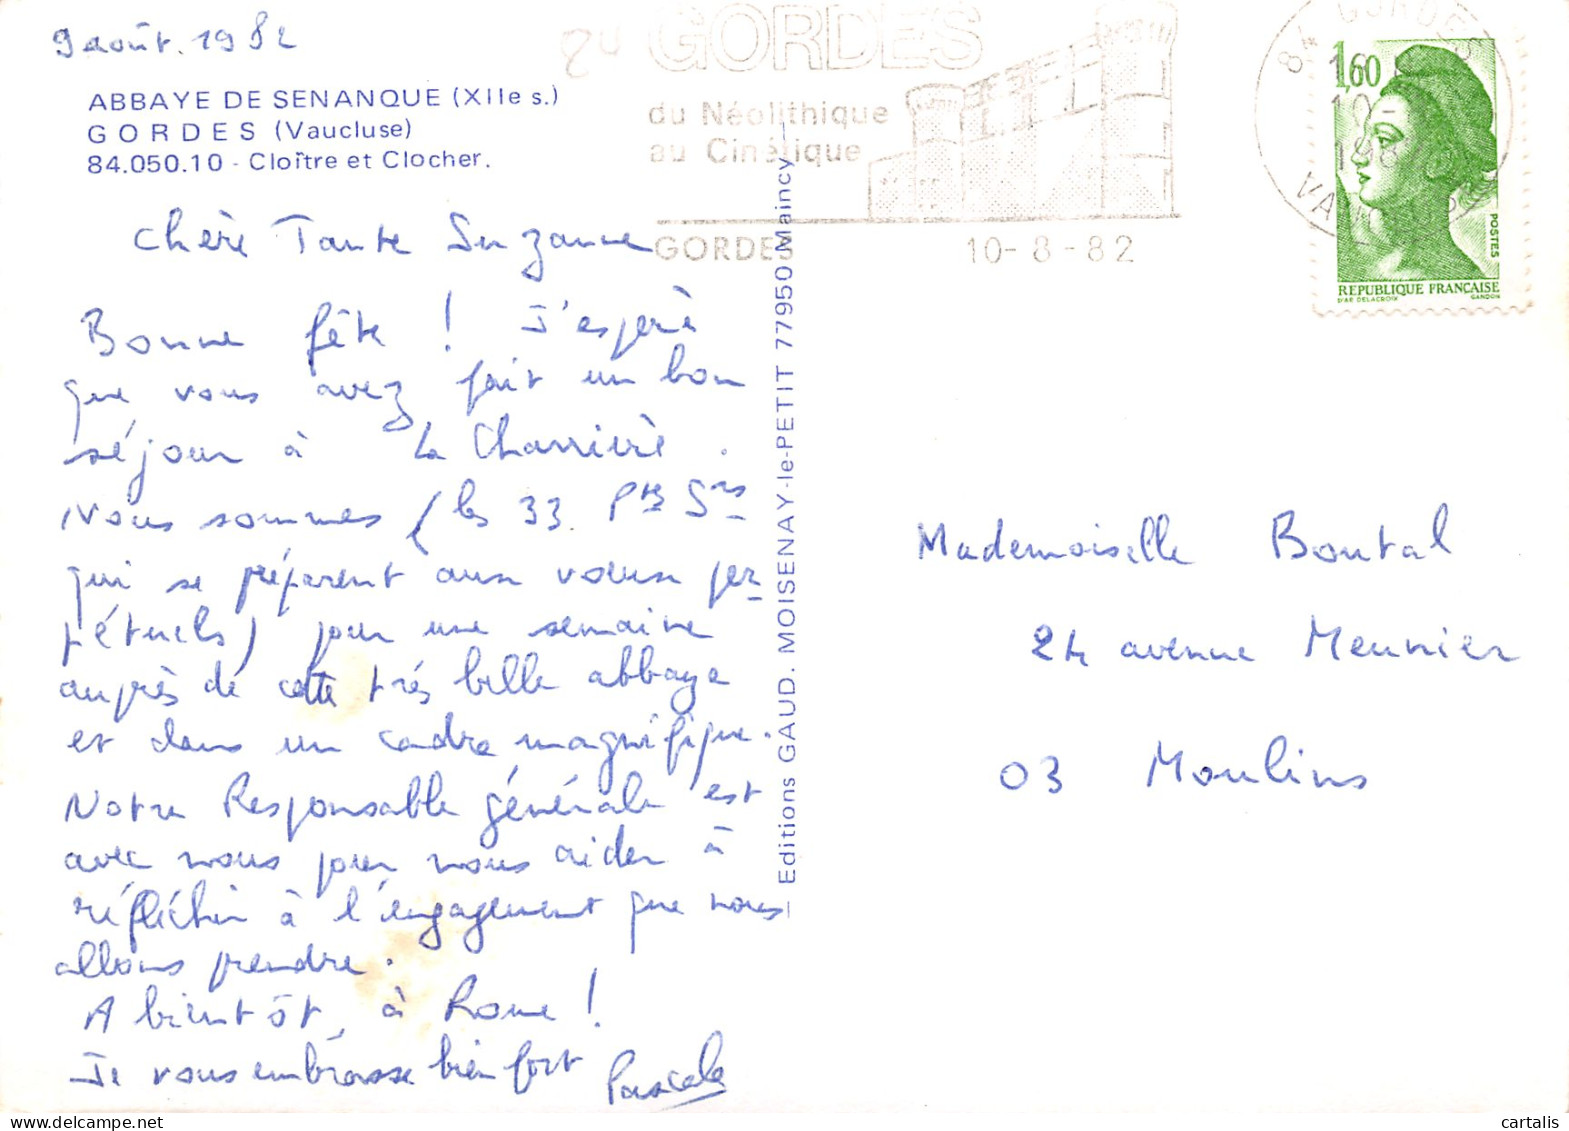 9 août. 1982
ABBAYE DE SENANQUE (XIIe s.)
GORDES (Vaucluse)
84.050.10 - Cloître et Clocher.
Chère Tante Suzanne
Bonne fête ! J'espère
que vous avez fait un bon
séjour à La Charrière.
Nous sommes (les 33 Ptes Srs
qui se préparent aux voeux per-
pétuels) pour une semaine
auprès de cette très belle abbaye
et dans un cadre magnifique.
Notre Responsable générale est
avec nous pour nous aider à
réfléchir à l'engagement que nous
allons prendre.
A bientôt, à Rome !
Je vous embrasse bien fort Pascale
Editions GAUD. MOISENAY-le-PETIT 77950 Maincy
GORDES
du Néolithique
au Cinétique
GORDES 10-8-82
84 GORDES
10-8
1982
VAUCLUSE
1,60
POSTES
REPUBLIQUE FRANÇAISE
D'AP. DELACROIX GANDON
Mademoiselle Boutal
24 avenue Meunier
03 Moulins
cartalis